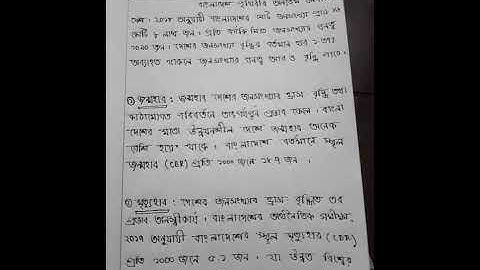 বাংলাদেশ পৃথিবীর অন্যতম
দেশ। ২০১৭ অনুযায়ী বাংলাদেশের মোট জনসংখ্যা প্রায়
কোটি ৮ লাখ জন। প্রতি বর্গকিমিতে জনসংখ্যার ঘনত্ব
জন। দেশের জনসংখ্যা বৃদ্ধির বর্তমান হার
অব্যাহত থাকলে জনসংখ্যার ঘনত্ব আরও বৃদ্ধি পাবে।
জন্মহার : জন্মহার দেশের জনসংখ্যার হ্রাস বৃদ্ধি তথা
কাঠামোগত পরিবর্তনে তাৎপর্যপূর্ণ প্রভাব ফেলে। বাংলা
দেশের মতো উন্নয়নশীল দেশে জন্মহার অনেক
বেশি হয়ে থাকে। বাংলাদেশে বর্তমানে স্থূল
জন্মহার (CBR) প্রতি ১০০০ জনে ১৮.৭ জন।
মৃত্যুহার : দেশের জনসংখ্যার হ্রাস বৃদ্ধিতে এর
প্রভাব অনস্বীকার্য। বাংলাদেশের অর্থনৈতিক সমীক্ষা,
২০১৭ অনুযায়ী বাংলাদেশের স্থূল মৃত্যুহার (CDR)
প্রতি ১০০০ জনে ৫.১ জন। যা উন্নত বিশ্বের